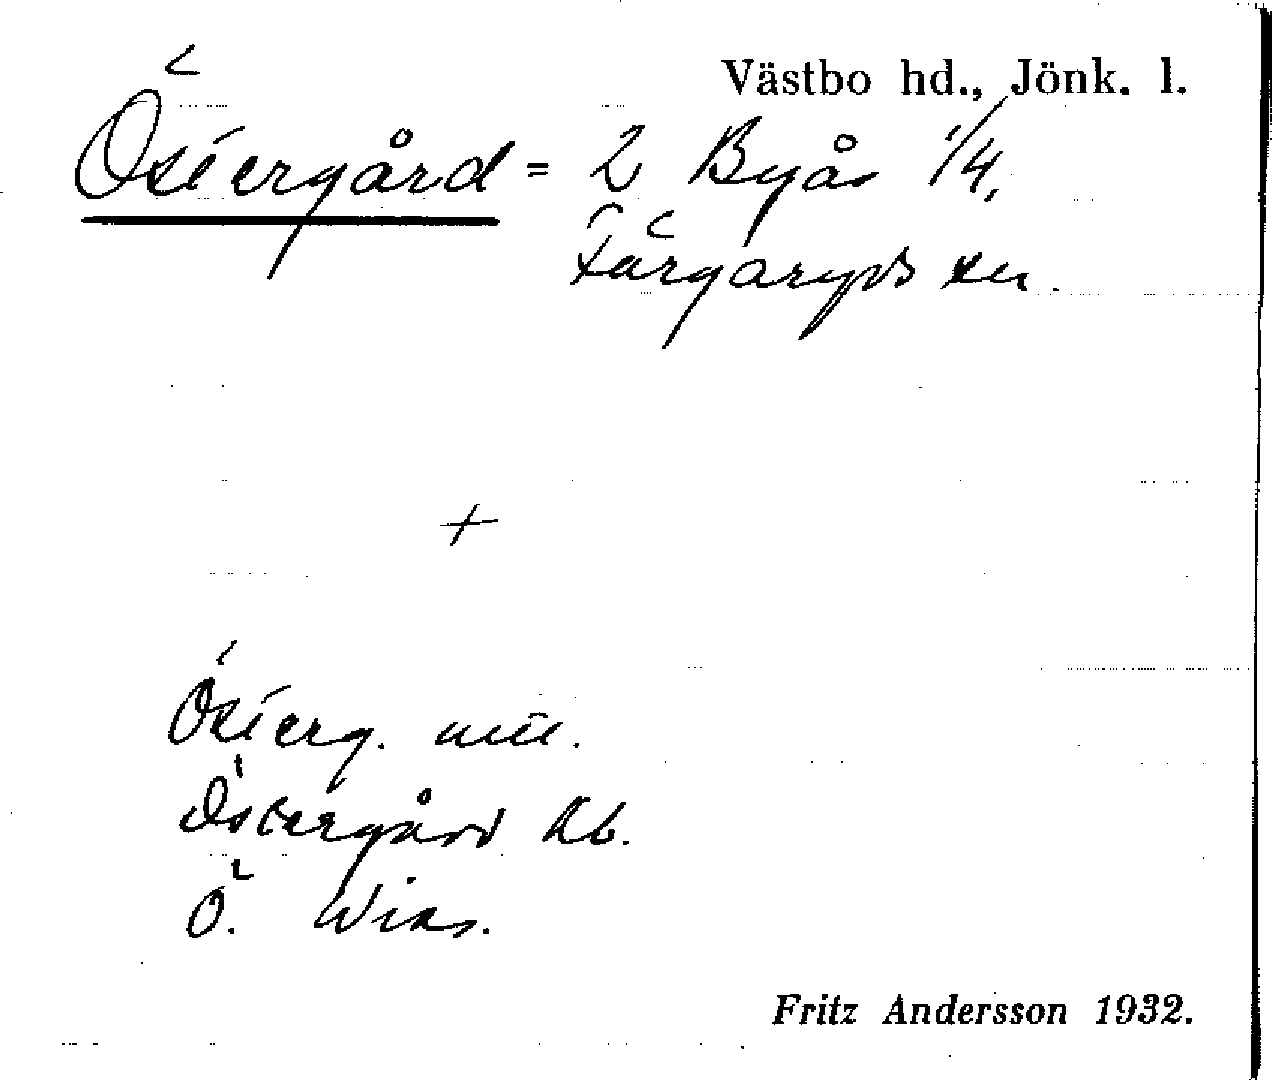 Västbo hd., Jönk. l.
Östergård = 2 Byås 1/4,
Färgaryds sn.
+
Österg. mtl.
Östergård Kb.
Ö. Wirs.
Fritz Andersson 1932.